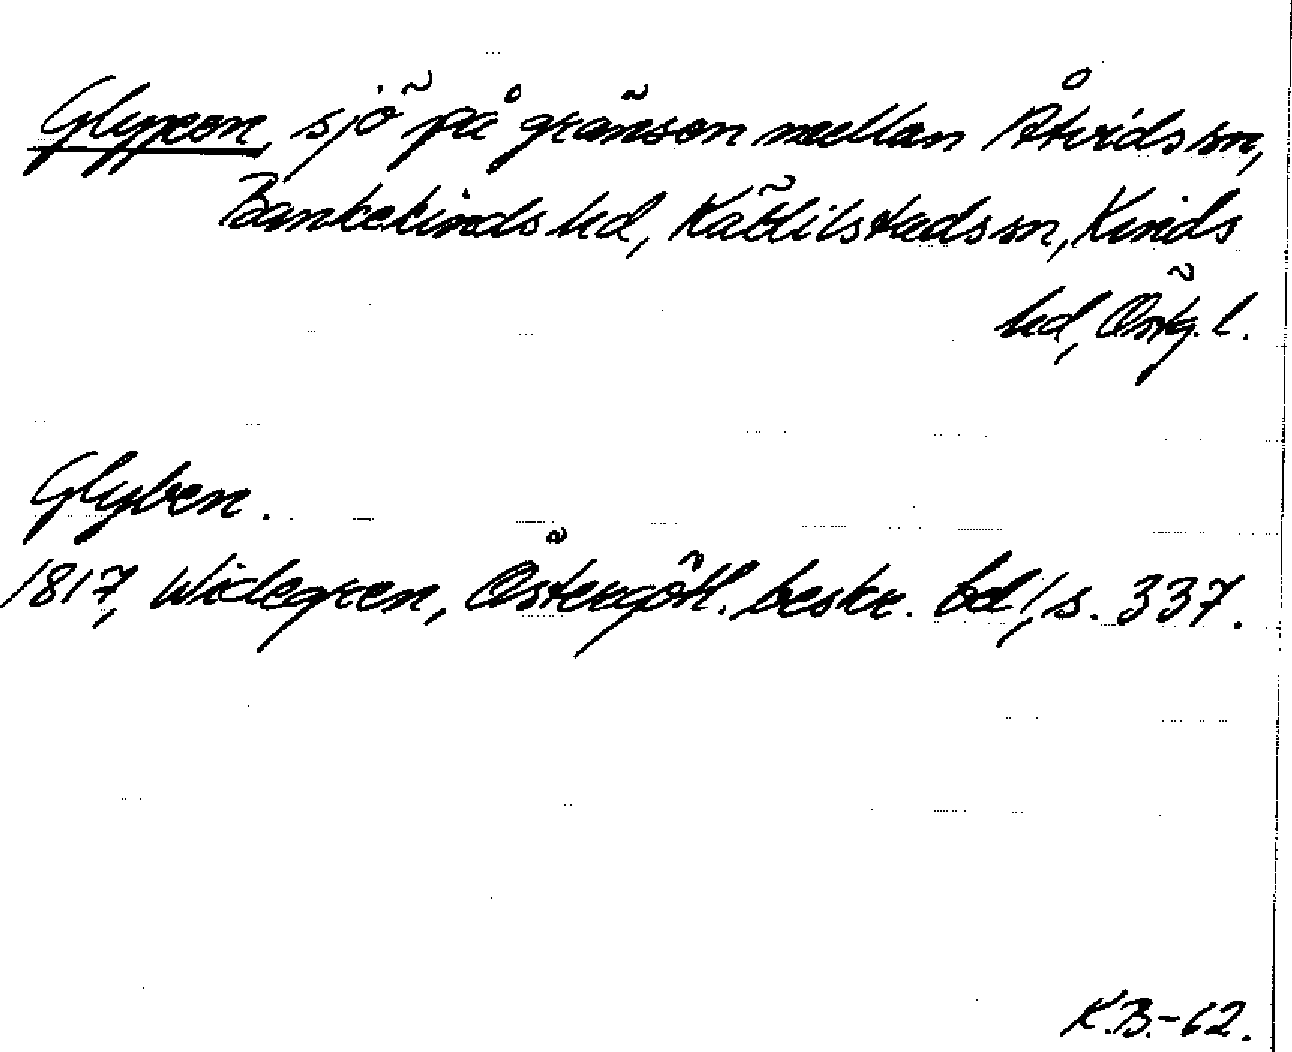 Glypen, sjö på gränsen mellan Åtvids sn,
Bankekinds hd, Kättilstads sn, Kinds
hd, Östg. l.
Glyben.
1817, Widegren, Östergötl. beskr. bd 1, s. 337.
K.B.-62.